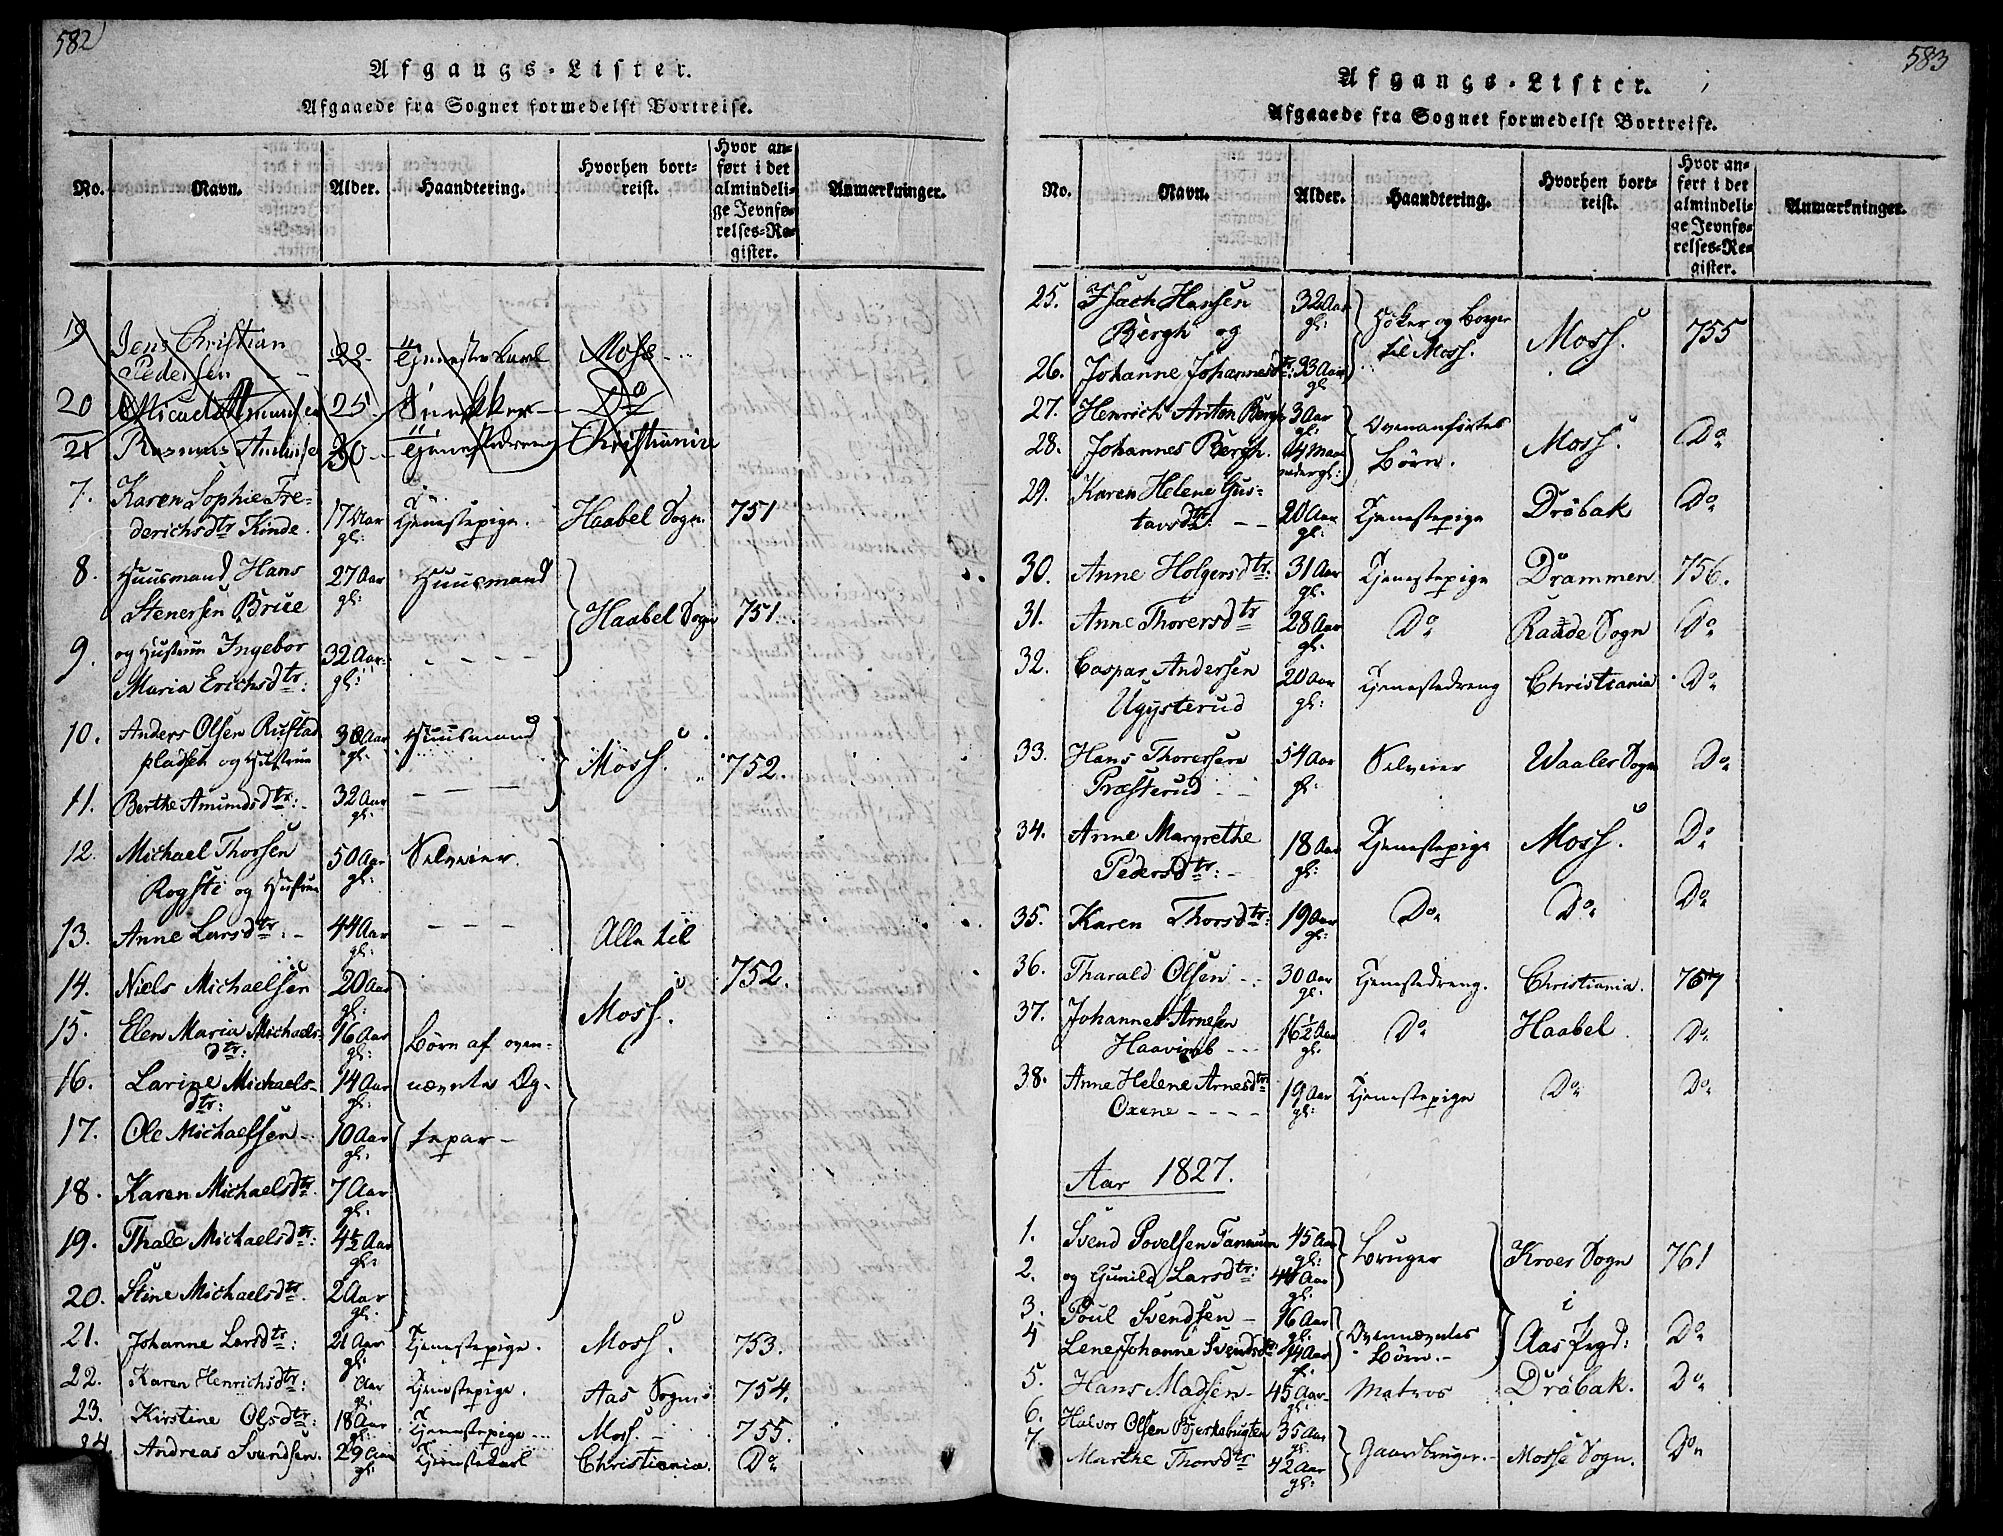 582
Afgangs-Lister.
Afgaaede fra Sognet formedelst Bortreise.
No. Navn. Alder. Haandtering. Hvorhen bort-
reist. Hvor an-
ført i det
almindeli-
ge Jevnfø-
relses-Re-
gister. Anmærkninger.
19 Jens Christian
Pedersen 22 Tjenestekarl Moss
20 25 Snekker Do
21 Rasmus 30 Tjenestedreng Christiania
7. Karen Sophie Fre-
derichsdtr Kinde. 17 Aar gl: Tjenestepige. Haabel Sogn 751
8. Huusmand Hans
Stenersen Brüe 27 Aar gl: Huusmand Haabel Sogn 751.
9. og Hustrue Ingebor
Maria Erichsdtr: 32 Aar gl: - - - -
10. Anders Olsen Rustad
pladsen og Hustrue 30 Aar gl. Huusmand Moss. 752.
11. Berthe Amundsdtr: 32 Aar gl: - - -
12. Michael Thorsen
Rogsti og Hustrue 50 Aar gl: Selveier.
13. Anne Larsdtr: - 44 Aar gl: - - - Alle til
14. Niels Michaelsen 20 Aar gl: Moss. 752.
15. Elen Maria Michaels-
dtr: 16 Aar gl: Børn af oven-
16. Larine Michaels-
dtr: 14 Aar gl: nævntes Eg-
17. Ole Michaelsen - 10 Aar gl. tepar -
18. Karen Michaelsdtr. 7 Aar gl.
19. Thale Michaelsdtr: 4½ Aar gl:
20. Stine Michaelsdtr. 2 Aar gl:
21. Johanne Larsdtr: 21 Aar gl: Tjenestepige. Moss. 753.
22. Karen Henrichsdtr: Aar gl: Tjenestepige. Aas Sogn 754.
23. Kirstine Olsdtr: 18 Aar Tjenestepige Moss - 755.
24. Andreas Svendsen. 29 Aar gl Tjenestekarl Christiania. Do
583
Afgangs-Lister.
Afgaaede fra Sognet formedelst Bortreise.
No. Navn. Alder. Haandtering. Hvorhen bort-
reist. Hvor an-
ført i det
almindeli-
ge Jevnfø-
relses-Re-
gister. Anmærkninger.
25. Isach Hansen
Bergh og 32 Aar gl: Høker og Borger
til Moss. Moss. 755
26. Johanne Johannesdtr: 33 Aar gl
27. Henrich Anton Bergh 3 Aar gl: Ovenanførtes
28. Johannes Bergh. Børn. Moss. Do
29. Karen Helene Gus-
tavsdtr: - - 20 Aar gl: Tjenestepige Drøbak Do
30. Anne Holgersdtr: 31 Aar gl: Tjenestepige Drammen 756.
31. Anne Thorersdtr 28 Aar gl. Do Raade Sogn Do
32. Caspar Andersen
Ugysterud 20 Aar gl: Tjenestedreng Christiania Do
33. Hans Thorersen
Præsterud - - 54 Aar gl: Selveier Waaler Sogn Do
34. Anne Margrethe
Pedersdtr: - 18 Aar gl: Tjenestepige Moss. Do
35. Karen Thorsdtr: 19 Aar gl: Do Do Do
36. Tharald Olsen - 30 Aar gl: Tjenestedreng. Christiania. 757
37. Johannes Arnesen
16½ Aar gl: Do Haabel Do
38. Anne Helene Arnesdtr
Oxene - - - - 19 Aar gl: Tjenestepige Do Do
Aar 1827.
1. Svend Povelsen Tannum 45 Aar gl: Bruger Kroer Sogn 761
2. og Gunild Larsdtr: 44 Aar gl:
3. Poul Svendsen - 16 Aar gl: Ovennævntes i
4 Lene Johanne Svendsdtr 14 Aar gl: Børn. - Aas Pregd: Do
5. Hans Madsen - 45 Aar gl: Matros Drøbak. Do
6. Halvor Olsen Bjerkebugten 35 Aar gl: Gaardbruger. - Mosse Sogn. Do
7. Marthe Thorsdtr 42 Aar gl: